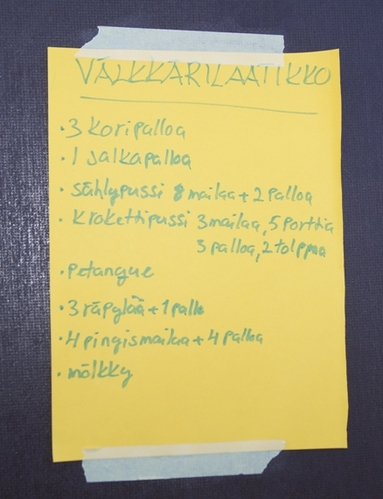 VÄLKKÄRILAATIKKO
• 3 koripalloa
• 1 jalkapalloa
• sählypussi 8 mailaa + 2 palloa
• krokettipussi 3 mailaa, 5 porttia
3 palloa, 2 tolppaa
• petanque
• 3 räpylää + 1 pallo
• 4 pingismailaa + 4 palloa
• mölkky